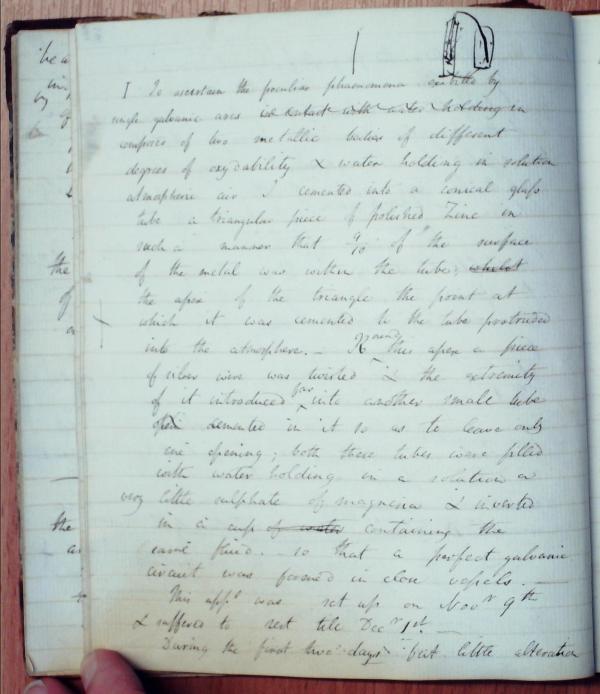 be a
in
by
the
of
the
1 To ascertain the peculiar phaenomena exhibited by
single galvanic arcs in contact with water holding in
composed of two metallic bodies of different
degrees of oxydability & water holding in solution
atmospheric air I cemented into a conical glass
tube a triangular piece of polished Zinc in
such a manner that 9/10 of the surface
of the metal was within the tube, whilst
the apex of the triangle the point at
which it was cemented to the tube protruded
into the atmosphere. — Round this apex a piece
of silver wire was twisted & the extremity
of it introduced far into another small tube
cemented in it so as to leave only
one opening; both these tubes were filled
with water holding in a solution a
very little sulphate of magnesia & inverted
in a cup of water containing the
same fluid. so that a perfect galvanic
circuit was formed in close vessels. —
This app.s was set up on Nov.r 9th
& suffered to rest till Dec.r 1st. —
During the first two days but little alteration